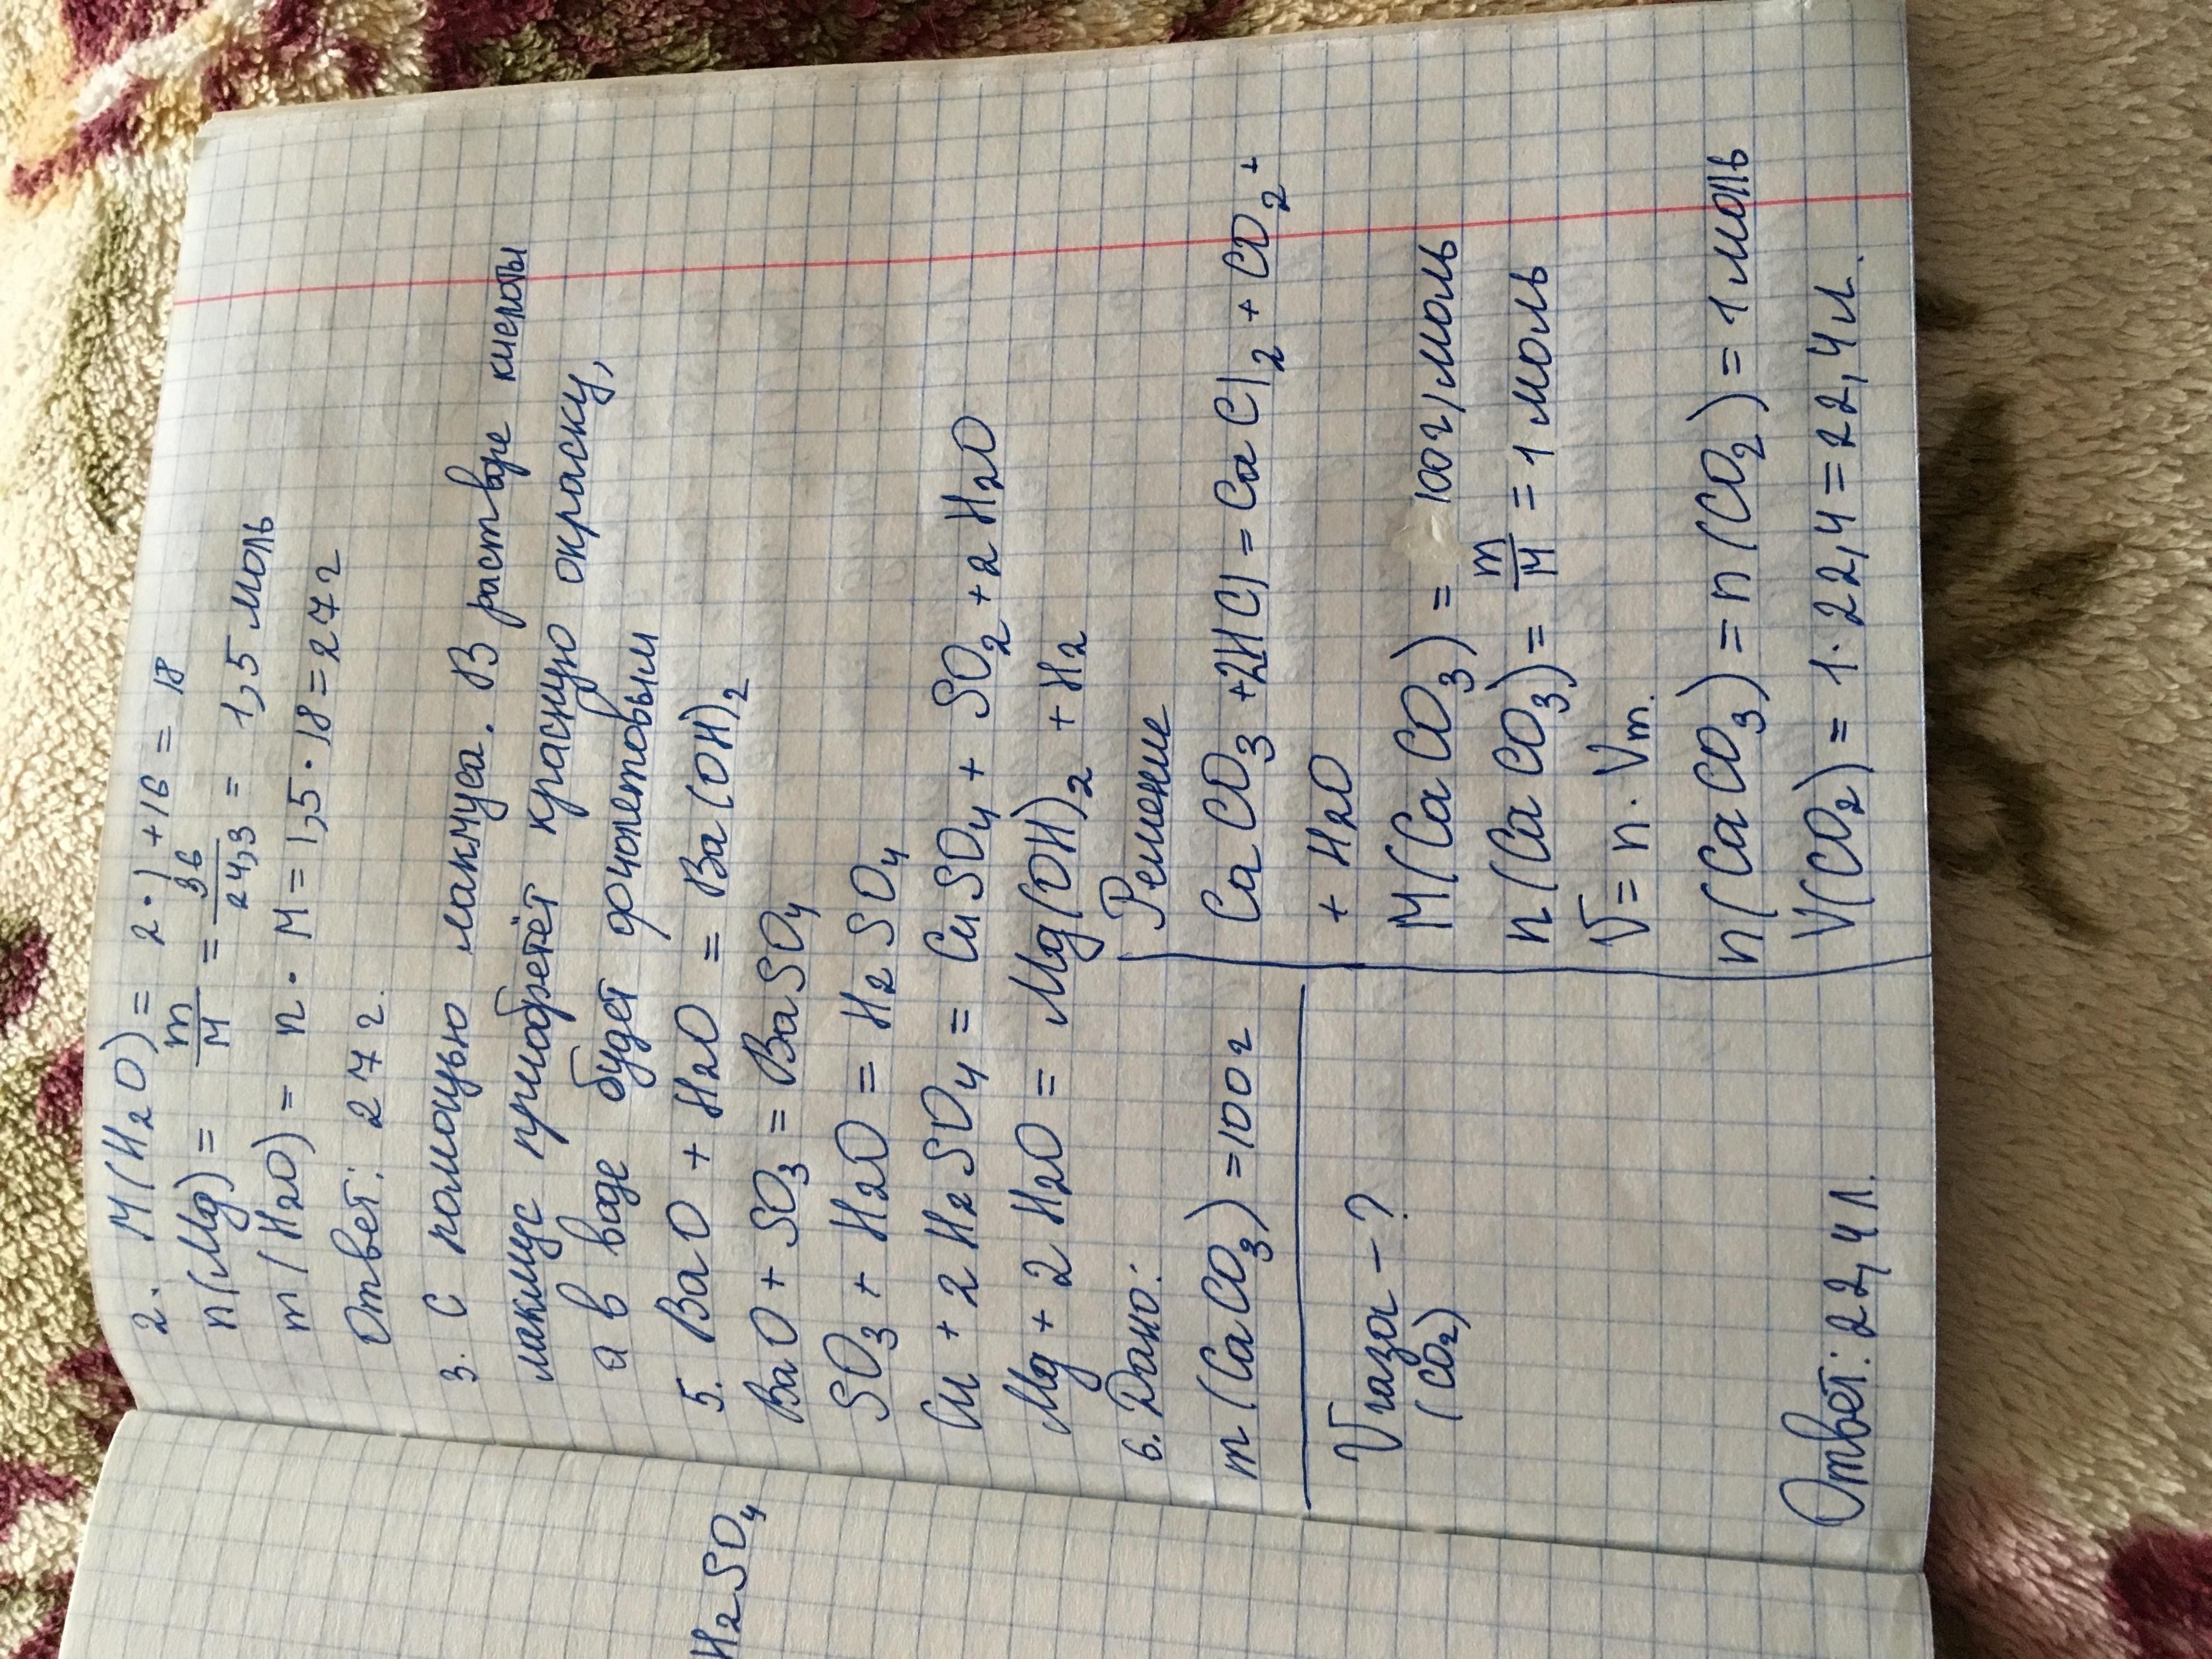 H₂SO₄
2. M(H₂O) = 2·1+16 = 18
n(Mg) = m/M = 36/24,3 = 1,5 моль
m(H₂O) = n · M = 1,5 · 18 = 27 г
Ответ: 27 г.
3. С помощью лакмуса. В растворе кислоты
лакмус приобретёт красную окраску,
а в воде будет фиолетовым
5. BaO + H₂O = Ba(OH)₂
BaO + SO₃ = BaSO₄
SO₃ + H₂O = H₂SO₄
Cu + 2H₂SO₄ = CuSO₄ + SO₂ + 2H₂O
Mg + 2H₂O = Mg(OH)₂ + H₂
6. Дано:
m(CaCO₃) = 100 г
V газа - ?
(CO₂)
Решение
CaCO₃ + 2HCl = CaCl₂ + CO₂ +
+ H₂O
M(CaCO₃) = 100 г/моль
n(CaCO₃) = m/M = 1 моль
V = n · Vm.
n(CaCO₃) = n(CO₂) = 1 моль
V(CO₂) = 1 · 22,4 = 22,4 л.
Ответ: 22,4 л.